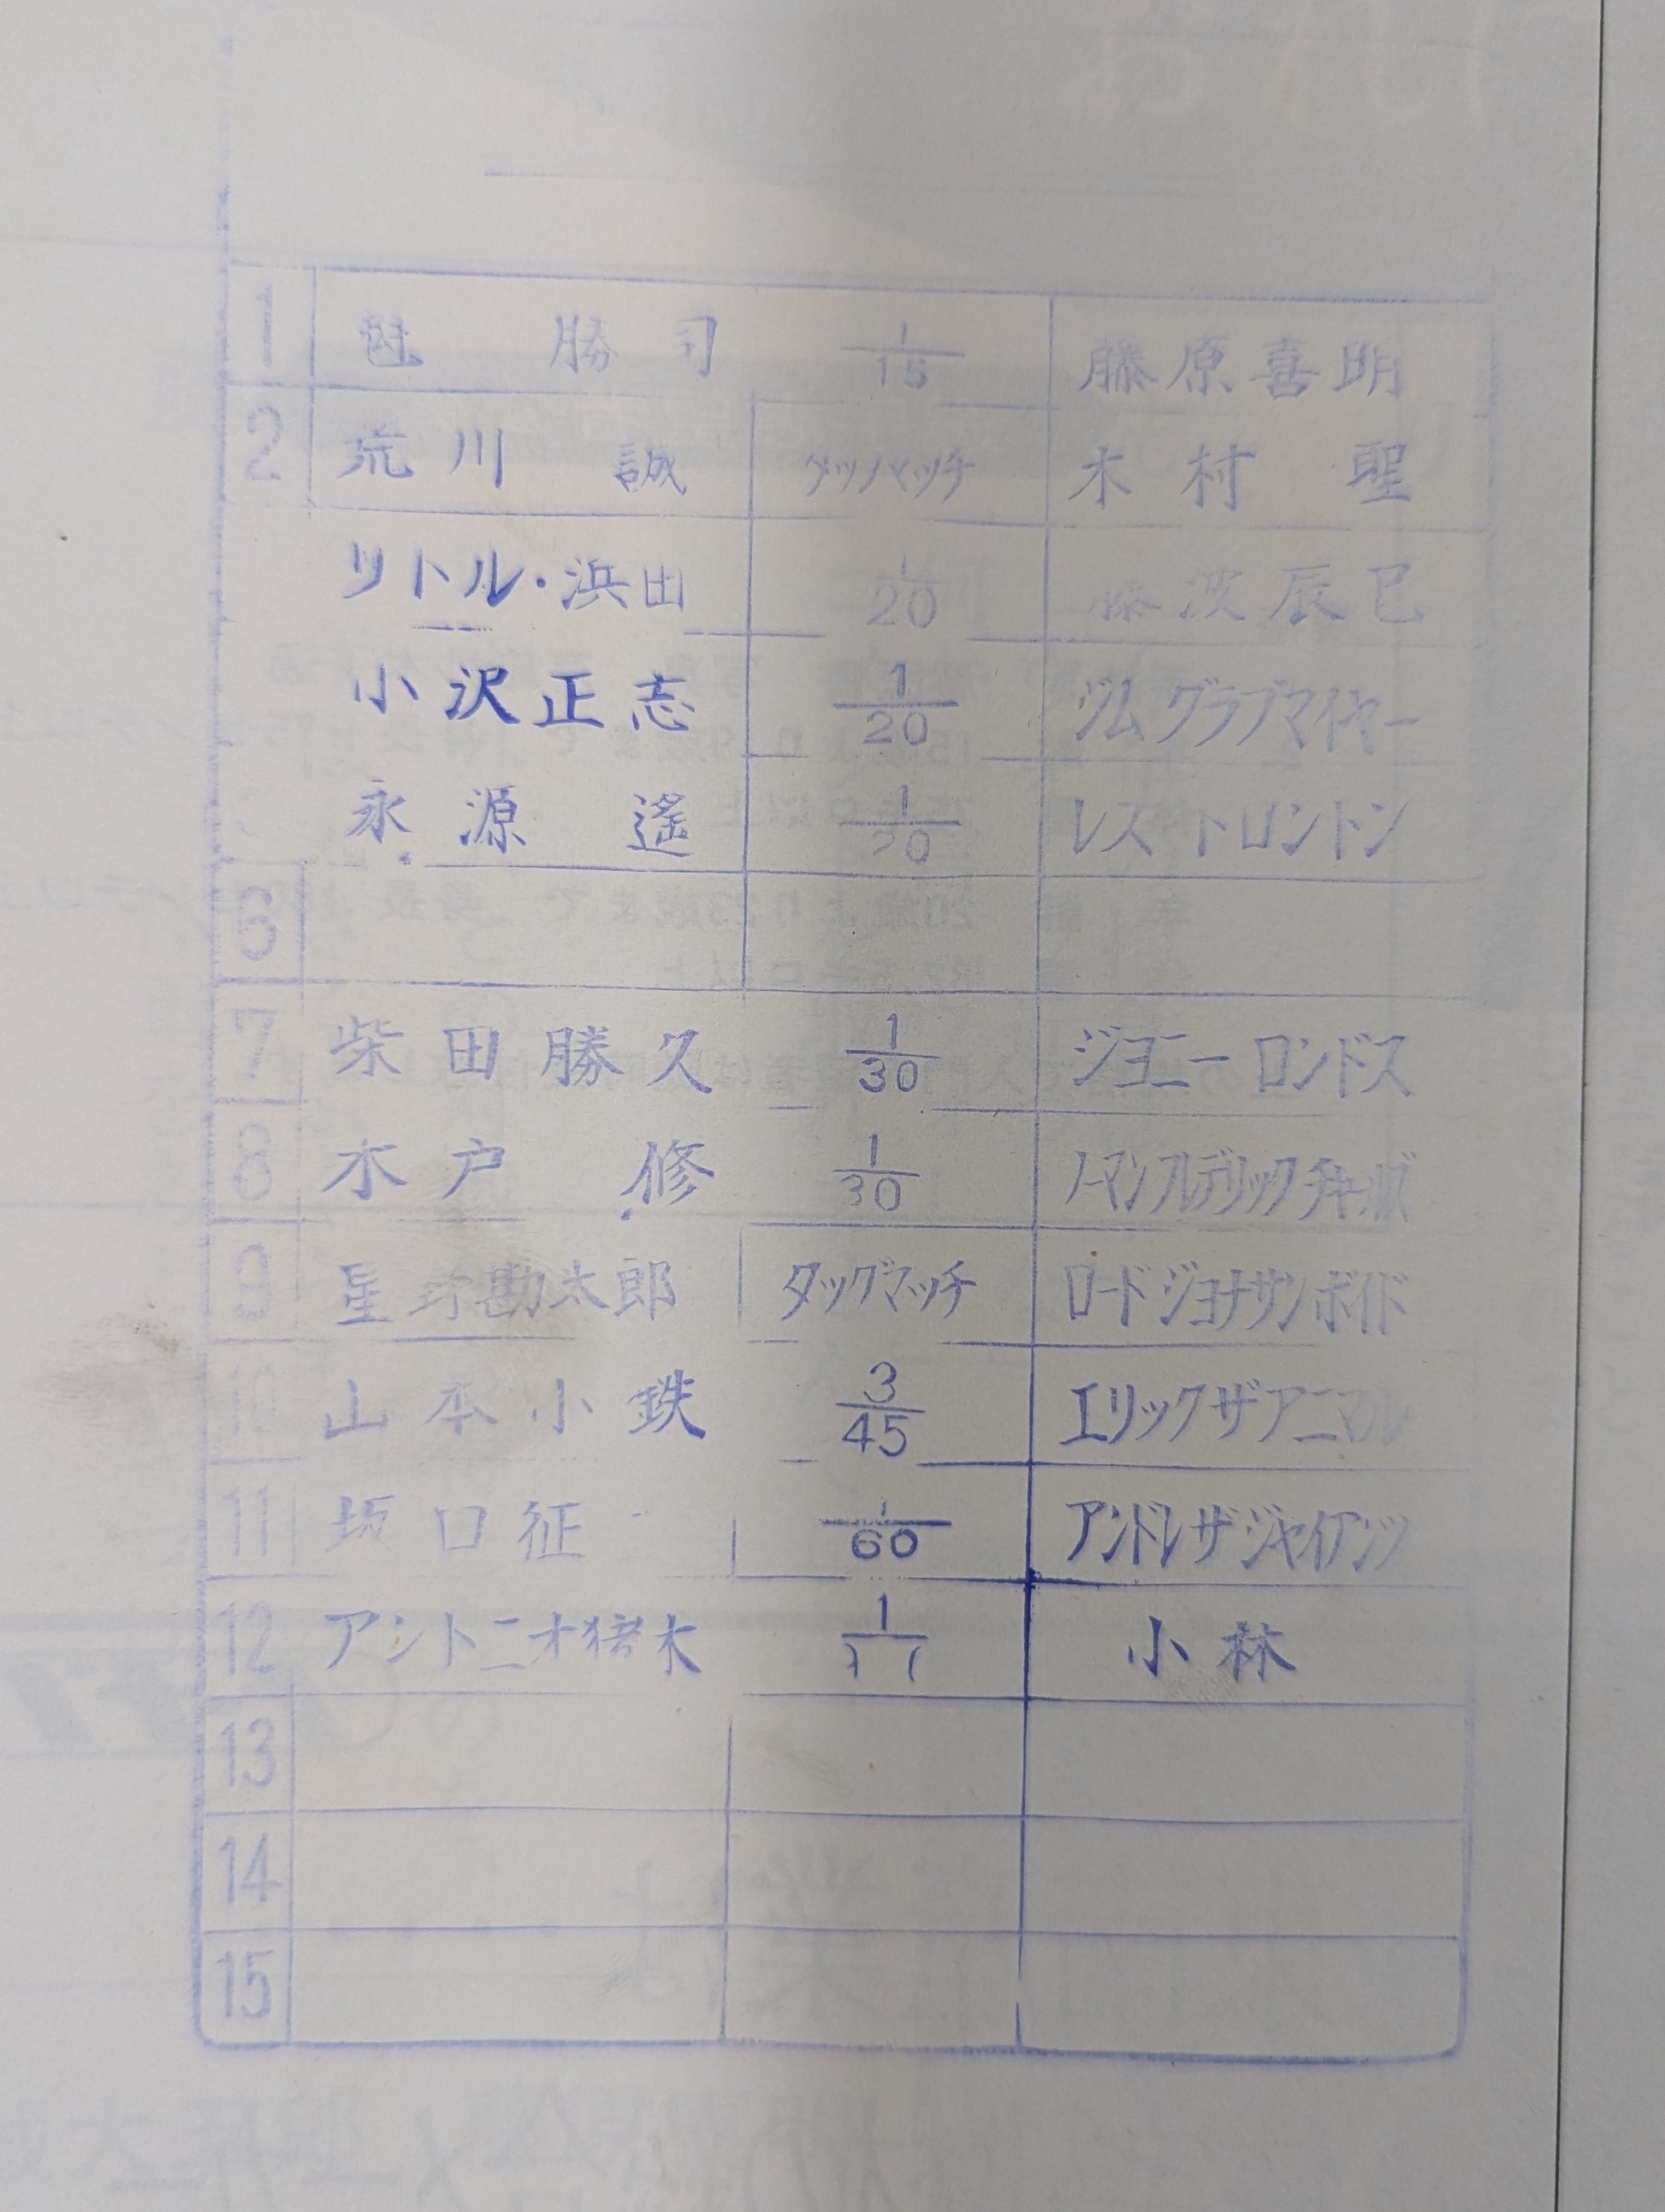 1 勝司 1/15 藤原喜明
2 荒川 誠 タッグマッチ 木村 聖
リトル・浜田 1/20 藤波辰巳
小沢正志 1/20 ジム グラブマイヤー
永源 遙 1/20 レス トロントン
6
7 柴田勝久 1/30 ジョニー ロンドス
8 木戸 修 1/30 ノーマンフレデリックチャールズ
9 星野勘太郎 タッグマッチ ロードジョナサンボイド
10 山本小鉄 3/45 エリックザアニマル
11 坂口征 1/60 アンドレザジャイアンツ
12 アントニオ猪木 1/ 小林
13
14
15